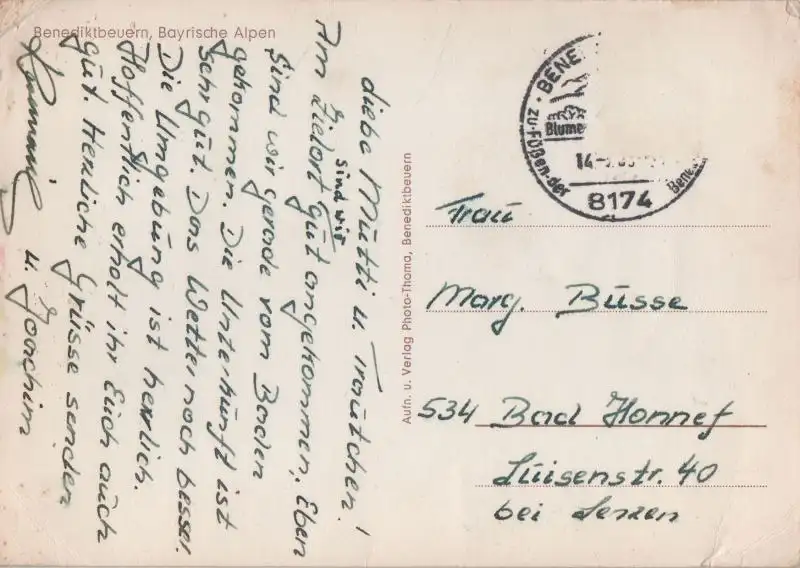 Benediktbeuern, Bayrische Alpen
Liebe Mutti u. Trautchen!
Am Zielort sind wir gut angekommen. Eben
sind wir gerade vom Baden
gekommen. Die Unterkunft ist
sehr gut. Das Wetter noch besser.
Die Umgebung ist herrlich.
Hoffentlich erholt ihr Euch auch
gut. Herzliche Grüsse senden
u. Joachim
Aufn. u. Verlag Photo-Thoma, Benediktbeuern
BENE
Blume
zu-Füßen-der
14-
8174
Bene
Frau
Marg. Büsse
534 Bad Honnef
Luisenstr. 40
bei